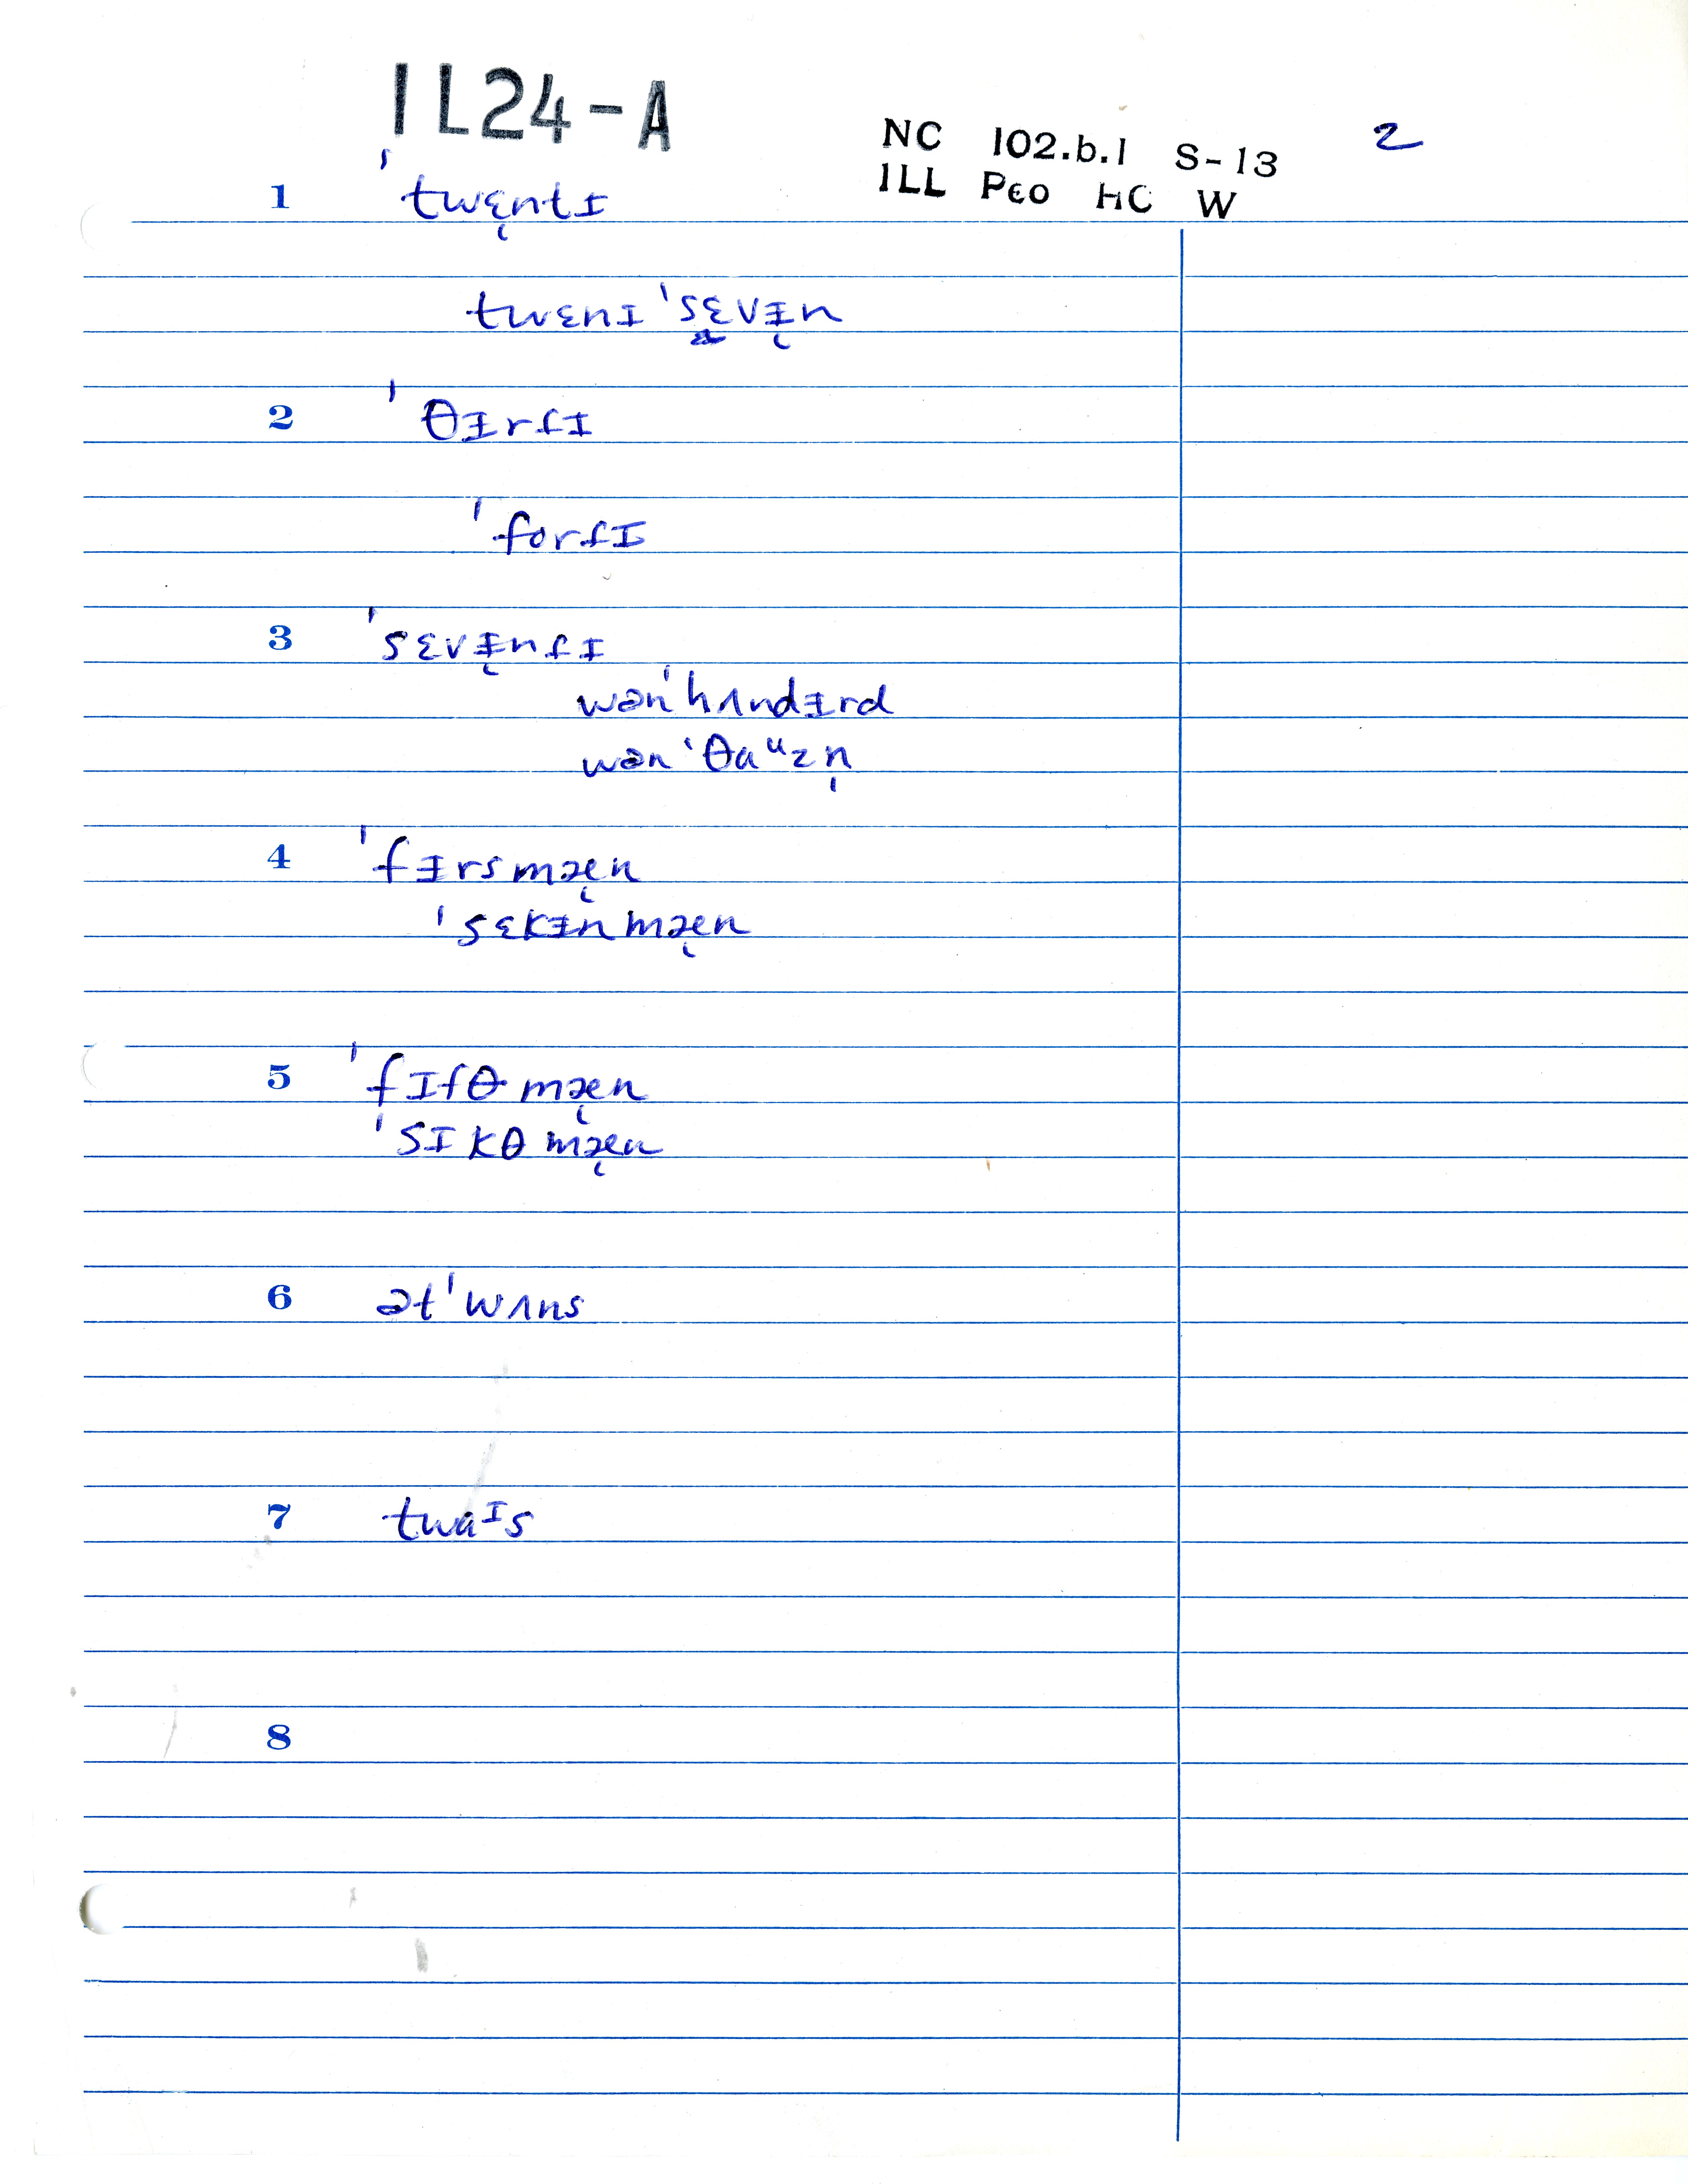 IL24-A
NC 102.b.1 S-13 2
ILL Peo HC W
1 ˈtwɛ̨ntɪ
twɛnɪ ˈsɛvɪ̵̨n
2 ˈθɪ̵rɾɪ
ˈforɾɪ
3 ˈsɛvɪ̵̨nɾɪ
wənˈhʌndɪ̵rd
wənˈθaᵘzn̩
4 ˈfɪ̵rsmæ̨n
ˈsɛkɪ̵nmæ̨n
5 ˈfɪfθmæ̨n
ˈsɪkθmæ̨n
6 ətˈwʌns
7 twaᶦs
8